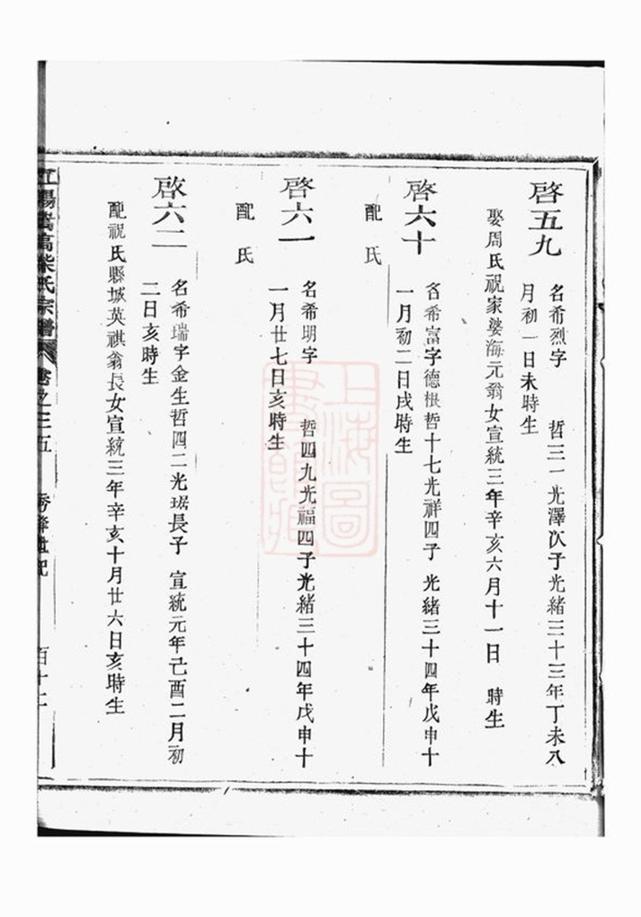 啓五九
名希烈字 哲三一光澤次子光緒三十三年丁未八
月初一日未時生
娶周氏祝家婆海元翁女宣統三年辛亥六月十一日 時生
啓六十
名希富字德根哲十七光祥四子 光緒三十四年戊申十
一月初二日戌時生
配 氏
啓六一
名希明字 哲四九光福四子光緒三十四年戊申十
一月廿七日亥時生
配 氏
啟六二
名希瑞字金生哲四二光琚長子 宣統元年己酉二月初
二日亥時生
配祝氏縣城英祺翁長女宣統三年辛亥十月廿六日亥時生
高柴氏宗譜 卷之三五
上海圖書館藏